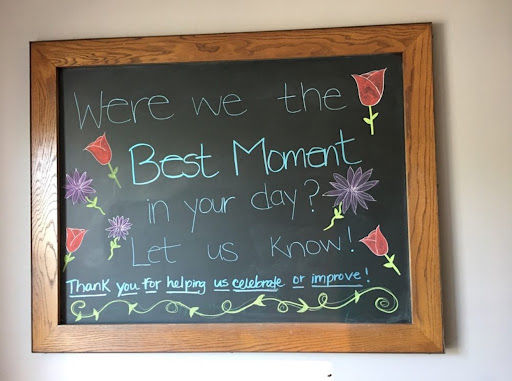 Were we the
Best Moment
in your day?
Let us know!
Thank you for helping us celebrate or improve!